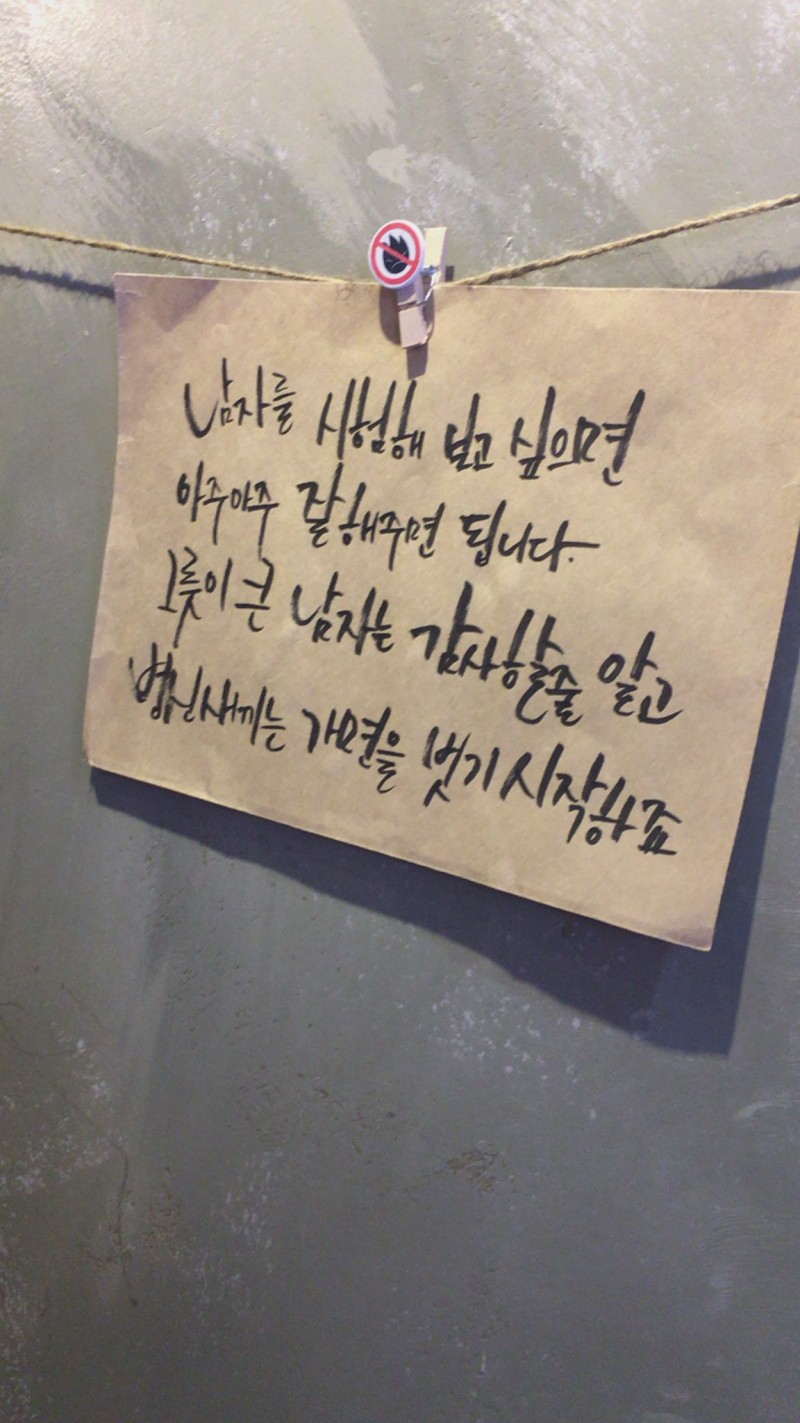 남자를 시험해 보고 싶으면
아주아주 잘해주면 됩니다.
그릇이 큰 남자는 감사할줄 알고
병신새끼는 가면을 벗기 시작하죠